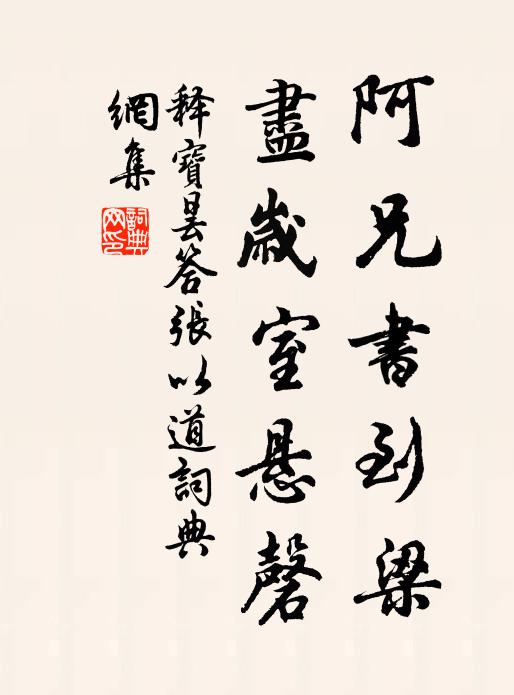 阿兄書到梁
盡歲室悬磬
释寶昙答張以道詞典
網集
詞典網印